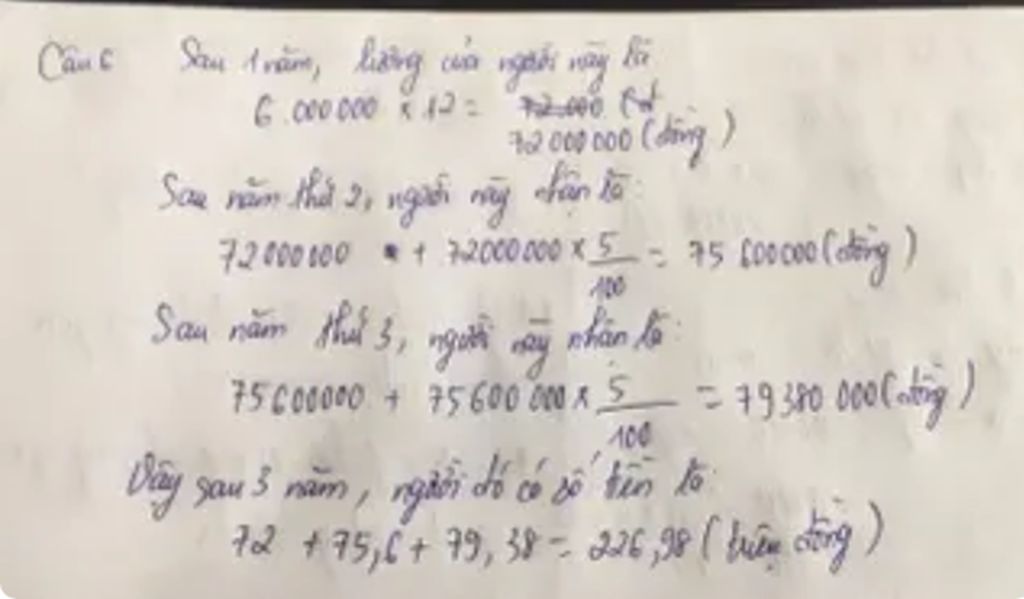 Câu 6 Sau 1 năm, lương của người này là
6.000000 x 12 = 72.000 (đ
72000000 (đồng)
Sau năm thứ 2, người này nhận là:
72000000 + 72000000 x 5/100 = 75 600000 (đồng)
Sau năm thứ 3, người này nhận là:
75600000 + 75600 000 x 5/100 = 79380 000 (đồng)
Vậy sau 3 năm, người đó có số tiền là:
72 + 75,6 + 79,38 = 226,98 (triệu đồng)